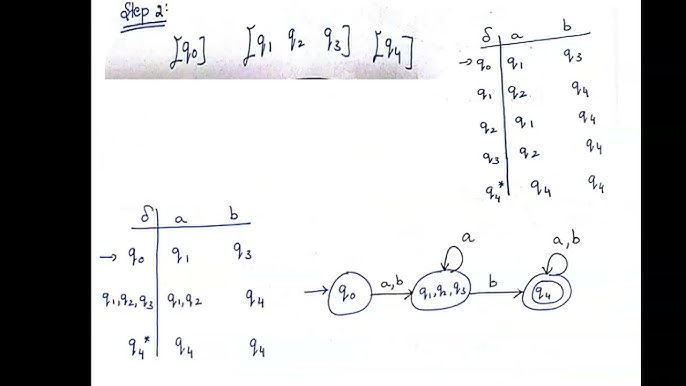 Step 2:
[q0] [q1 q2 q3] [q4]
δ a b
→ q0 q1 q3
q1 q2 q4
q2 q1 q4
q3 q2 q4
q4* q4 q4
δ a b
→ q0 q1 q3
q1,q2,q3 q1,q2 q4
q4* q4 q4
a a,b
q0 a,b q1,q2,q3 b q4